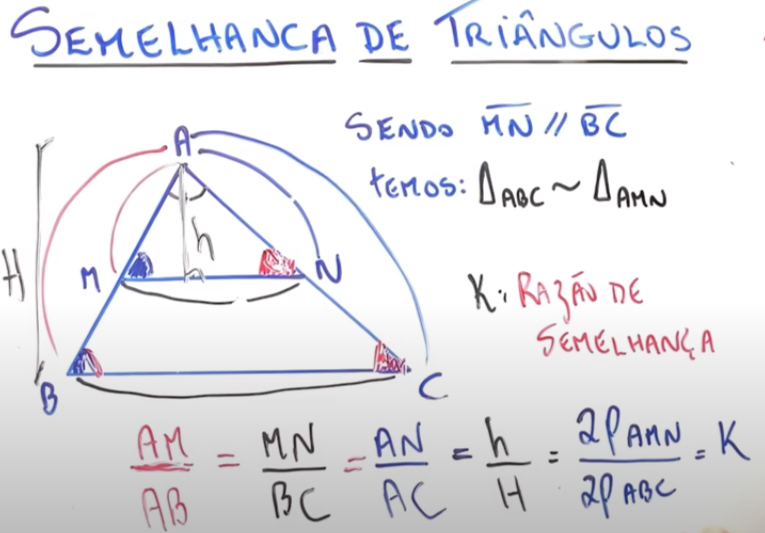 SEMELHANCA DE TRIÂNGULOS
SENDO MN // BC
TEMOS: Δ ABC ~ Δ AMN
A
H
h
M
N
B
C
K: RAZÃO DE
SEMELHANÇA
AM/AB = MN/BC = AN/AC = h/H = 2P AMN/2P ABC = K